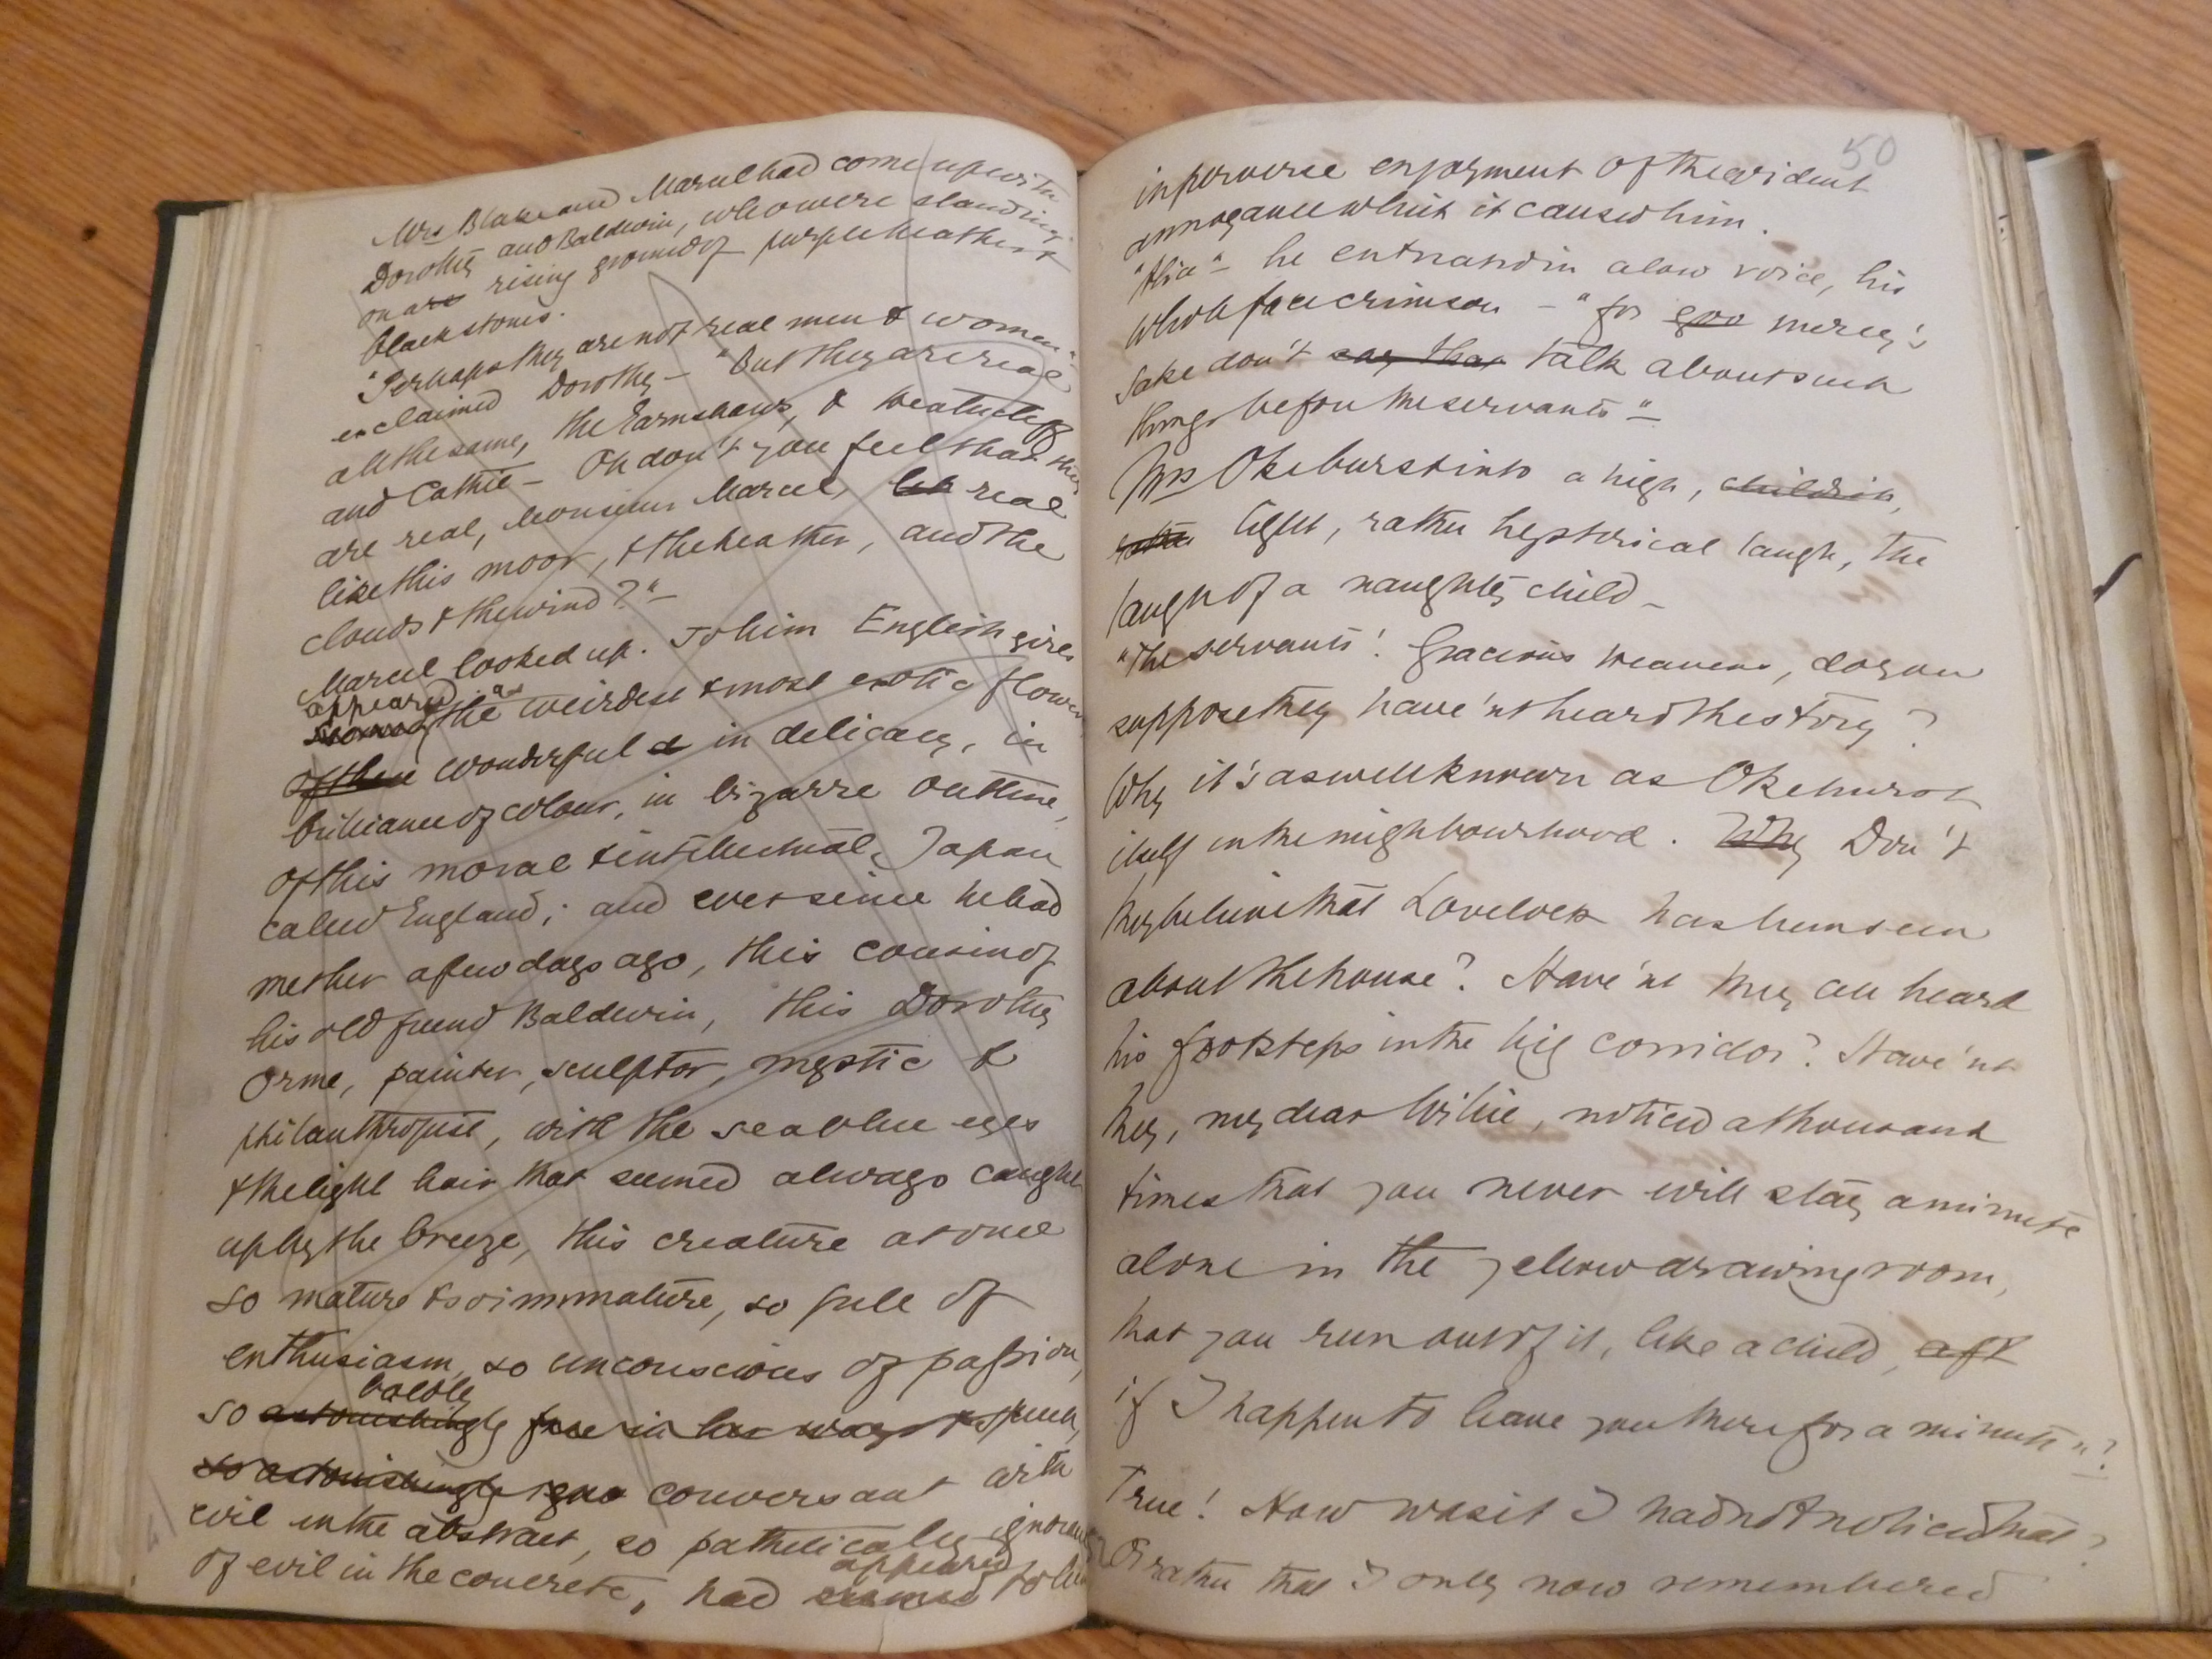 Mrs Blake and Marcel had come up with
Dorothy and Baldwin, who were standing
on a rising ground of purple heather &
black stones.
"Perhaps they are not real men & women"
exclaimed Dorothy — "But they are real
all the same, the Earnshaws, & Heathcliff
and Cathie — Oh don't you feel that they
are real, Monsieur Marcel, real
like this moor, & the heather, and the
clouds & the wind?" —
Marcel looked up. To him English girls
appeared as the weirdest & most exotic flowers
of these wonderful in delicacy, in
brilliance of colour, in bizarre outline,
of this moral & intellectual Japan
called England; and ever since he had
met her a few days ago, this cousin of
his old friend Baldwin, this Dorothy
Orme, painter, sculptor, mystic &
philanthropist, with the sea blue eyes
& the light hair that seemed always caught
up by the breeze, this creature at once
so mature & so immature, so full of
enthusiasm, so unconscious of passion,
so astonishingly boldly free in her ways & speech,
so astonishingly conversant with
evil in the abstract, so pathetically ignorant
of evil in the concrete, had seemed appeared to him
50
in perverse enjoyment of the evident
annoyance which it caused him.
"Alice" — he entreated in a low voice, his
whole face crimson — "for mercy's
sake don't say that talk about such
things before the servants" —
Mrs Oke burst into a high, childish,
rather light, rather hysterical laugh, the
laugh of a naughty child —
"The servants! Gracious heavens, do you
suppose they have'nt heard the story?
Why it's as well known as Okehurst
itself in the neighbourhood. Why Don't
they believe that Lovelock has been seen
about the house? Have'nt they all heard
his footsteps in the big corridor? Have'nt
they, my dear Willie, noticed a thousand
times that you never will stay a minute
alone in the yellow drawing room,
that you run out of it, like a child, aft
if I happen to leave you there for a minute"?
True! How was it I had not noticed that?
Or rather that I only now remembered